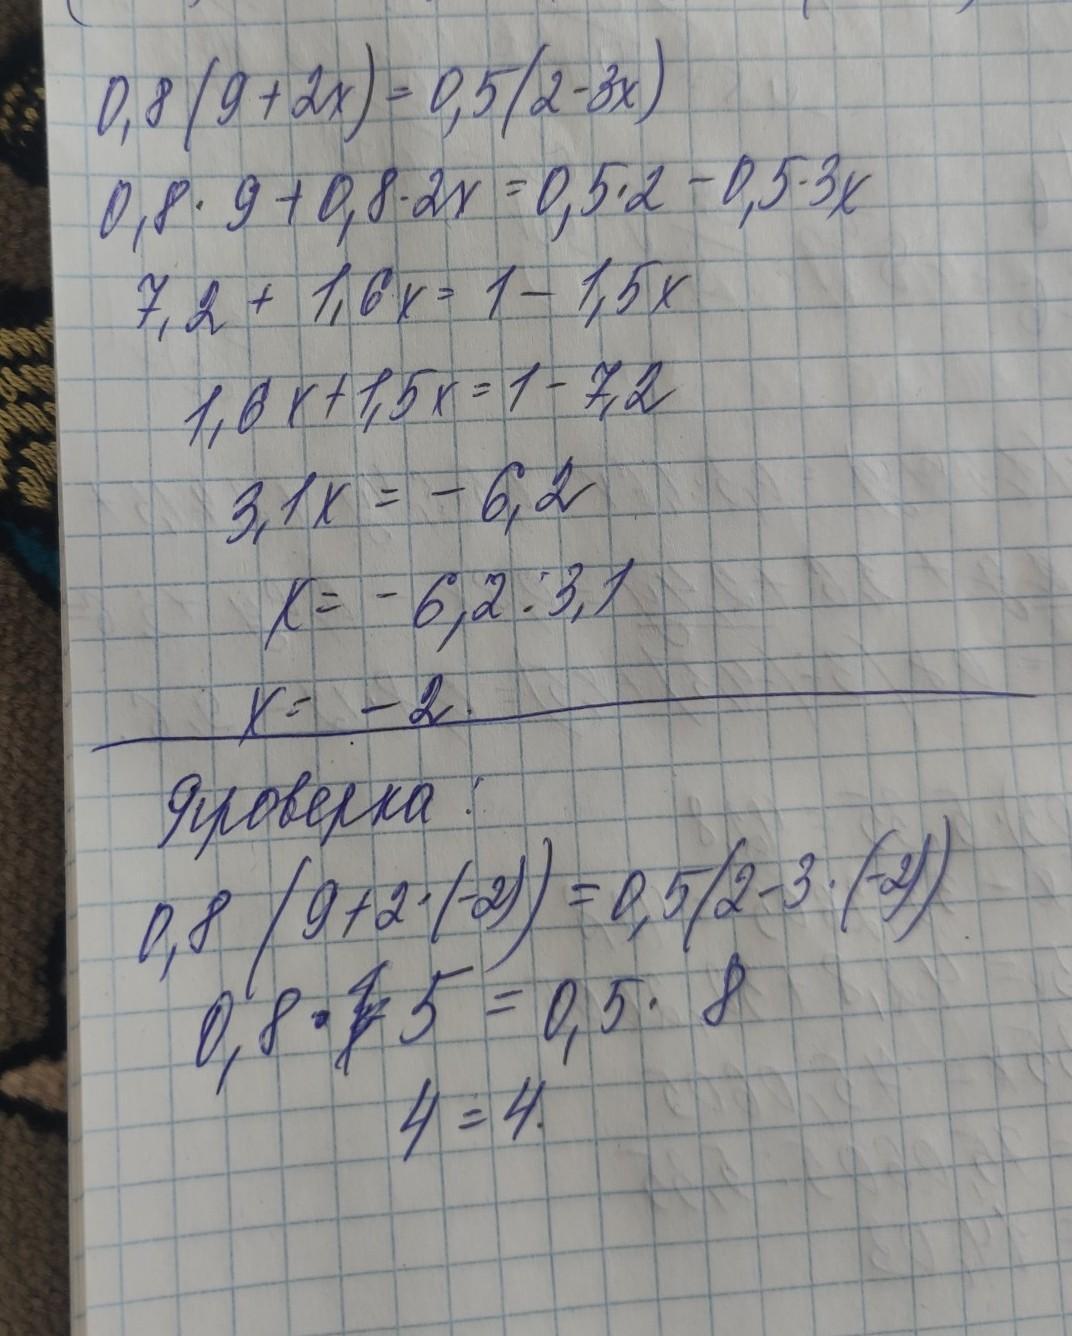 0,8(9+2x)=0,5(2-3x)
0,8·9+0,8·2x=0,5·2-0,5·3x
7,2+1,6x=1-1,5x
1,6x+1,5x=1-7,2
3,1x=-6,2
x=-6,2:3,1
x=-2.
Проверка:
0,8(9+2·(-2))=0,5(2-3·(-2))
0,8·5=0,5·8
4=4.